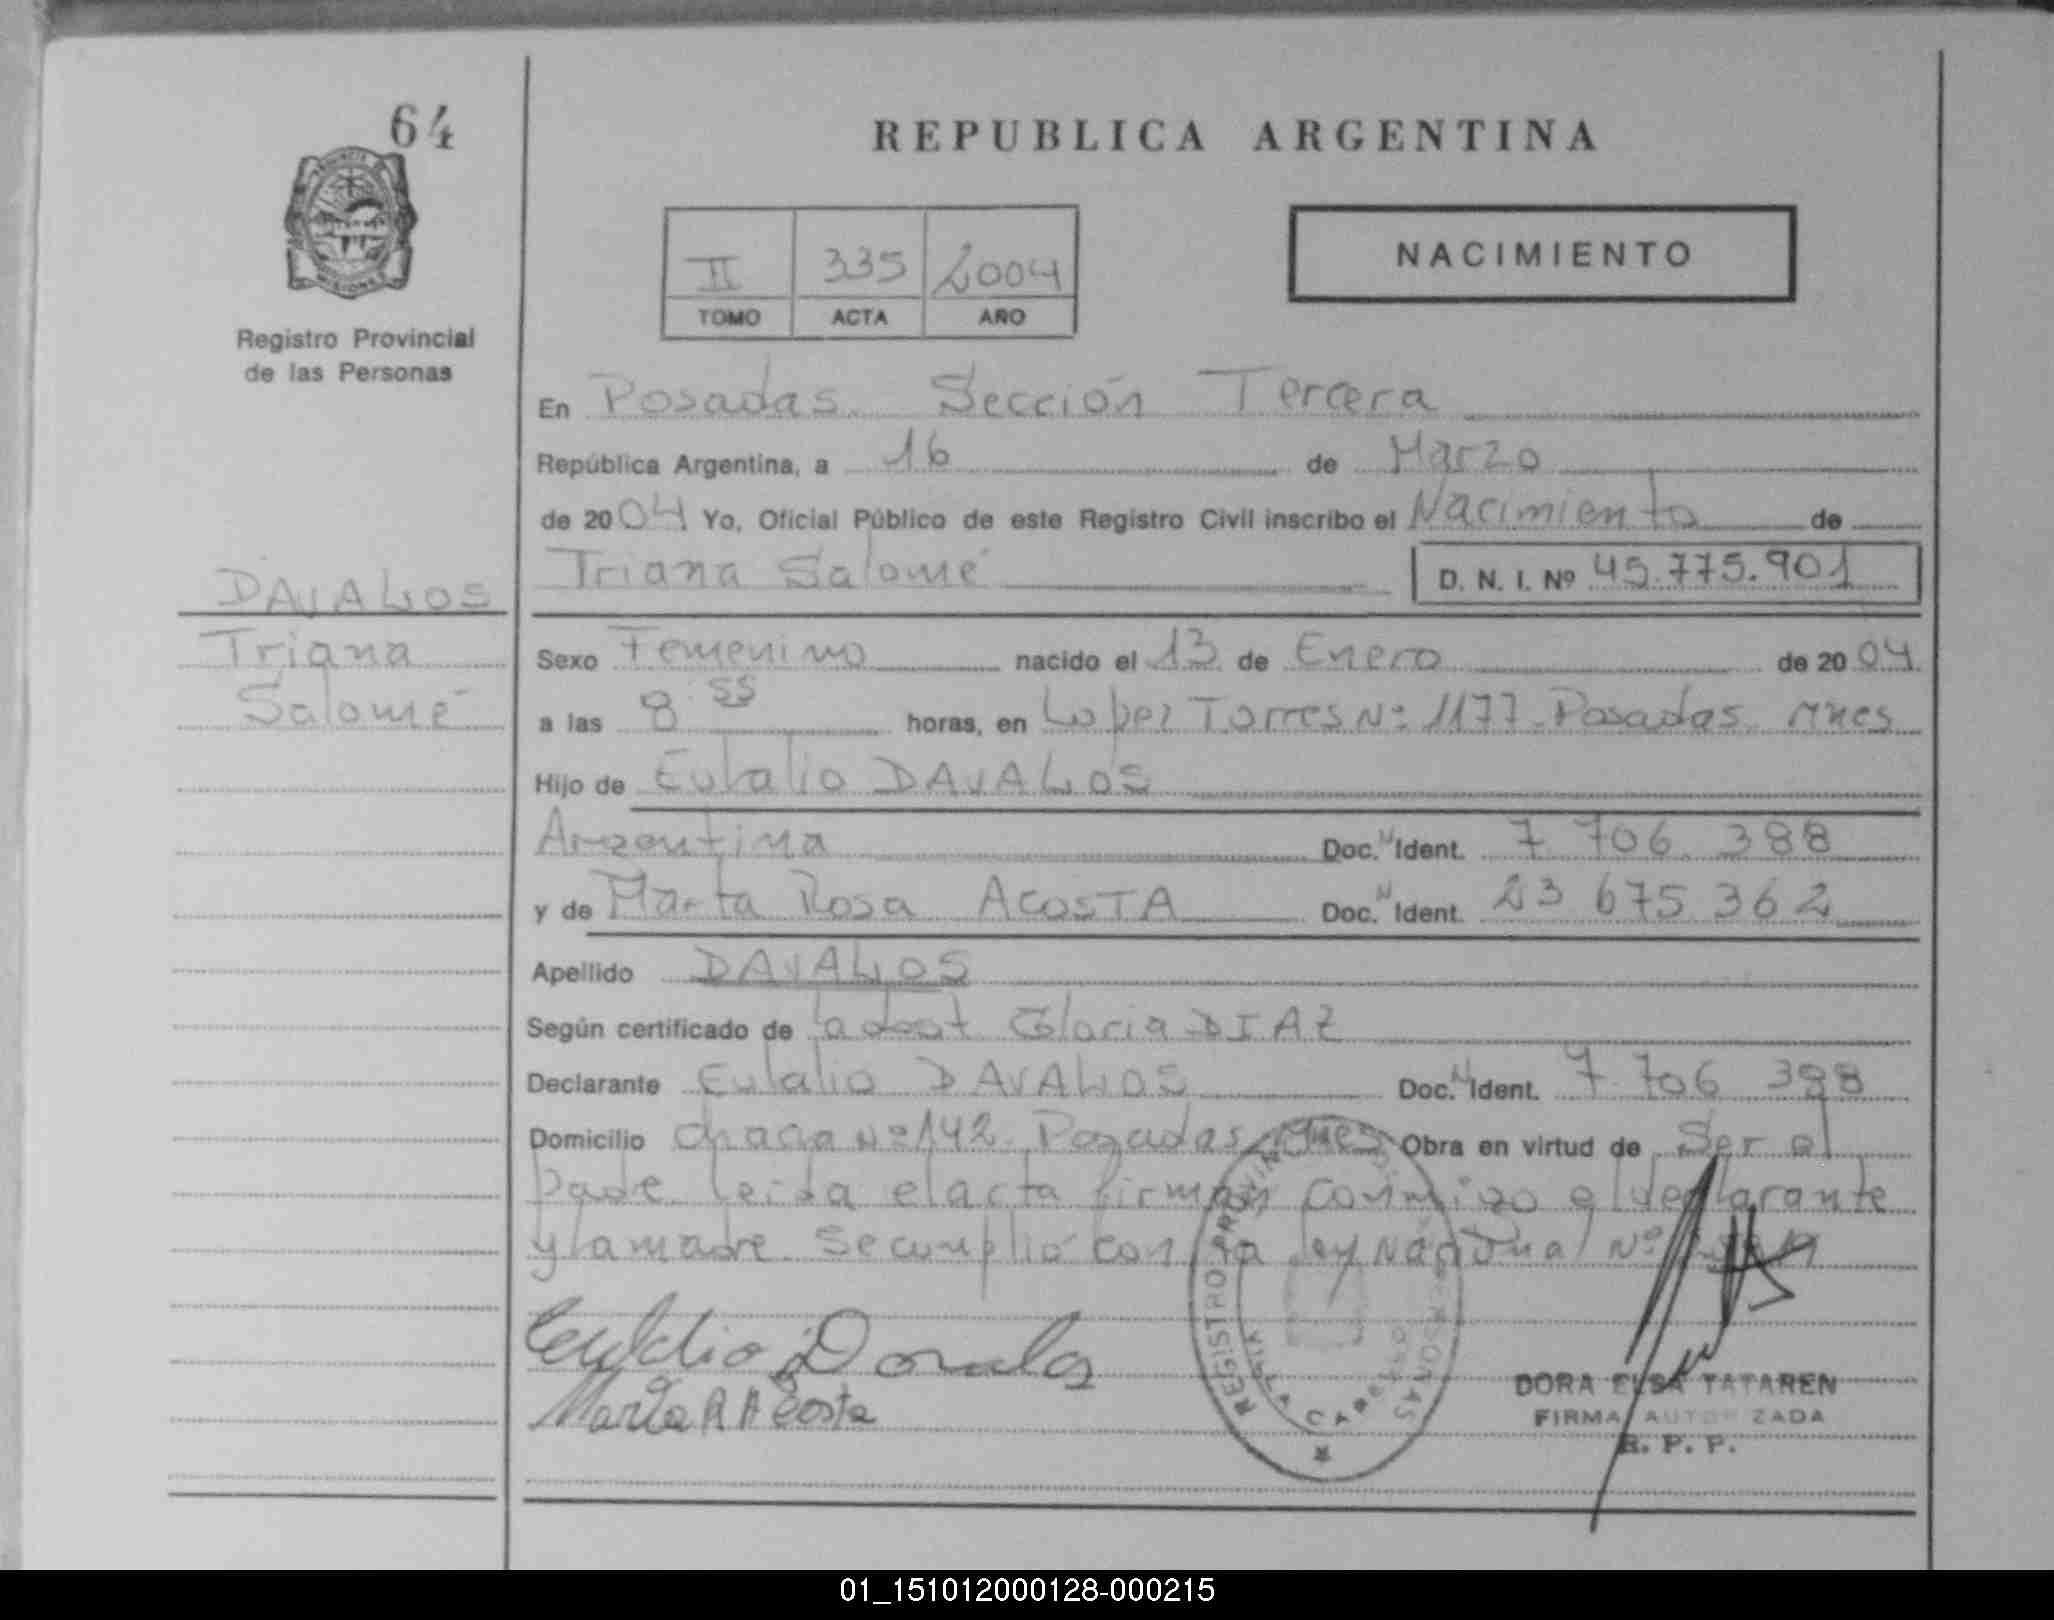 64
REPUBLICA ARGENTINA
Registro Provincial
de las Personas
II 335 2004
TOMO ACTA AÑO
NACIMIENTO
En Posadas. Sección Tercera
República Argentina, a 16 de Marzo
de 2004 Yo, Oficial Público de este Registro Civil inscribo el Nacimiento de
Triana Salomé D. N. I. Nº 45.775.901
DAVALOS
Triana
Salomé
Sexo Femenino nacido el 13 de Enero de 2004
a las 8 55 horas, en Lopez Torres Nº 1177. Posadas. Mnes
Hijo de Eulalio DAVALOS
Argentina Doc. N Ident. 7 706 388
y de Marta Rosa ACOSTA Doc. N Ident. 23 675 362
Apellido DAVALOS
Según certificado de la Gloria DIAZ
Declarante Eulalio DAVALOS Doc. N Ident. 7 706 388
Domicilio chacra Nº 142. Posadas, Mnes Obra en virtud de Ser el
padre leida el acta firman conmigo el declarante
y la madre. Se cumplió con la ley Nacional Nº
Eulalio Davalos
Marta R Acosta
REGISTRO PROVIN PERSONAS
CABECERA
DORA ELSA TATAREN
FIRMA AUTORIZADA
R. P. P.
01_151012000128-000215